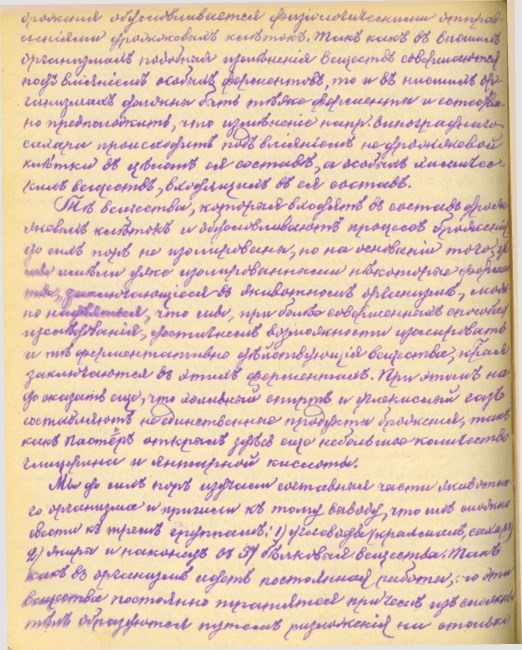 броженія обусловливается физіологическими отправ-
леніями дрожжевыхъ клѣтокъ. Такъ какъ въ высшихъ
организмахъ подобныя измѣненія веществъ совершаются
подъ вліяніемъ особыхъ ферментовъ, то и въ низшихъ ор-
ганизмахъ должны быть тѣже ферменты и естествен-
но предположить, что измѣненіе напр. винограднаго
сахара происходитъ подъ вліяніемъ не дрожжевой
клѣтки въ цѣломъ ея составѣ, а особыхъ химичес-
кихъ веществъ, входящихъ въ ея составъ.
Тѣ вещества, которыя входятъ въ составъ дрож-
жевыхъ клѣтокъ и обусловливаютъ процессъ броженія
до сихъ поръ не изолированы, но на основаніи того, что
мы имѣли уже изолированными некоторые фермен-
ты, заключающіеся въ животномъ организмѣ, мож-
но надѣяться, что мы, при болѣе совершенныхъ способахъ
изслѣдованія, достигнемъ возможности изолировать
и тѣ ферментативно дѣйствующія вещества, кот.
заключаются въ этихъ ферментахъ. При этомъ на-
до сказать еще, что винный спиртъ и углекислый газъ
составляютъ не единственные продукты броженія, такъ
какъ Пастёръ открылъ здѣсь еще небольшое количество
глицерина и янтарной кислоты.
Мы до сихъ поръ изучали составныя части животна-
го организма и пришли къ тому выводу, что ихъ можно
свести къ тремъ группамъ: 1) углеводы (крахмалъ, сахаръ)
2) жиры и наконецъ въ 3) бѣлковыя вещества. Такъ
какъ въ организмѣ идетъ постоянная работа, то эти
вещества постоянно тратятся причемъ изъ
образуются путемъ разложенія ни столько